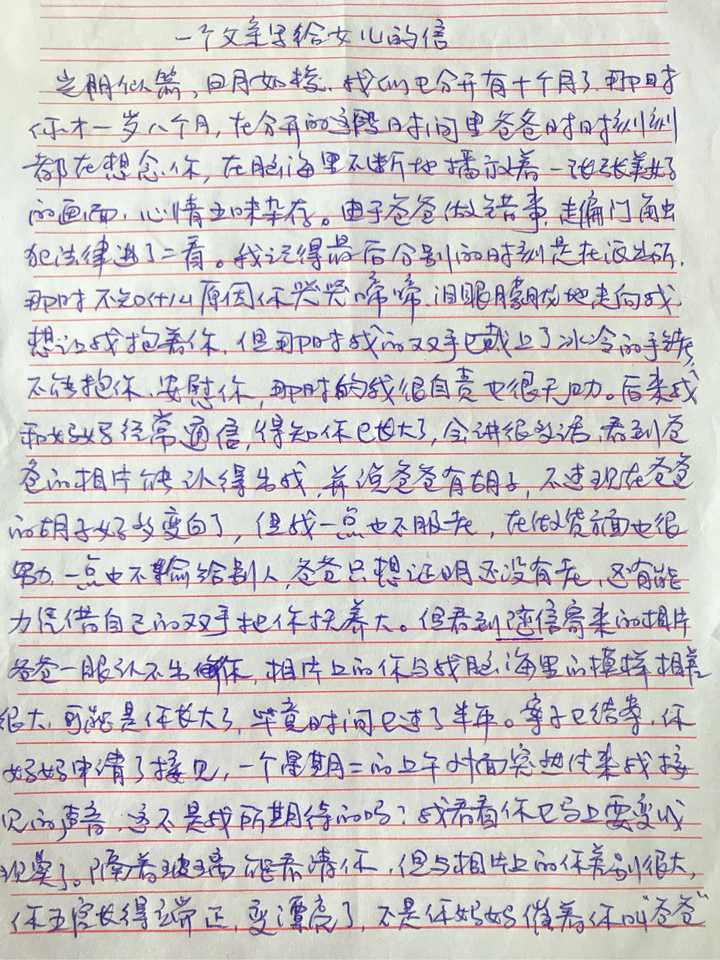 一个父亲写给女儿的信
光阴似箭，日月如梭，我们已分开有十个月了，那时
你才一岁八个月，在分开的这段时间里爸爸时时刻刻
都在想念你，在脑海里不断地播放着一张张美好
的画面，心情五味杂存。由于爸爸做错事，走偏门触
犯法律进了二看。我记得最后分别的时刻是在派出所，
那时不知什么原因你哭哭啼啼，泪眼朦胧地走向我
想让我抱着你，但那时我的双手已戴上了冰冷的手铐，
不能抱你、安慰你，那时的我很自责也很无助。后来我
和妈妈经常通信，得知你已长大了，会讲很多话，看到爸
爸的相片能认得出我，并说爸爸有胡子，不过现在爸爸
的胡子好多变白了，但我一点也不服老，在做货方面也很
努力，一点也不输给别人，爸爸只想证明还没有老，还有能
力凭借自己的双手把你抚养大。但看到随信寄来的相片
爸爸一眼认不出你，相片上的你与我脑海里的模样相差
很大，可能是你长大了，毕竟时间已过了半年。案子已结案，你
妈妈申请了接见，一个星期二的上午对面突然传来我接
见的声音，这不是我所期待的吗？我看看你已马上要变成
现实了。隔着玻璃能看清你，但与相片上的你差别很大，
你五官长得端正，变漂亮了，不是你妈妈催着你叫“爸爸”